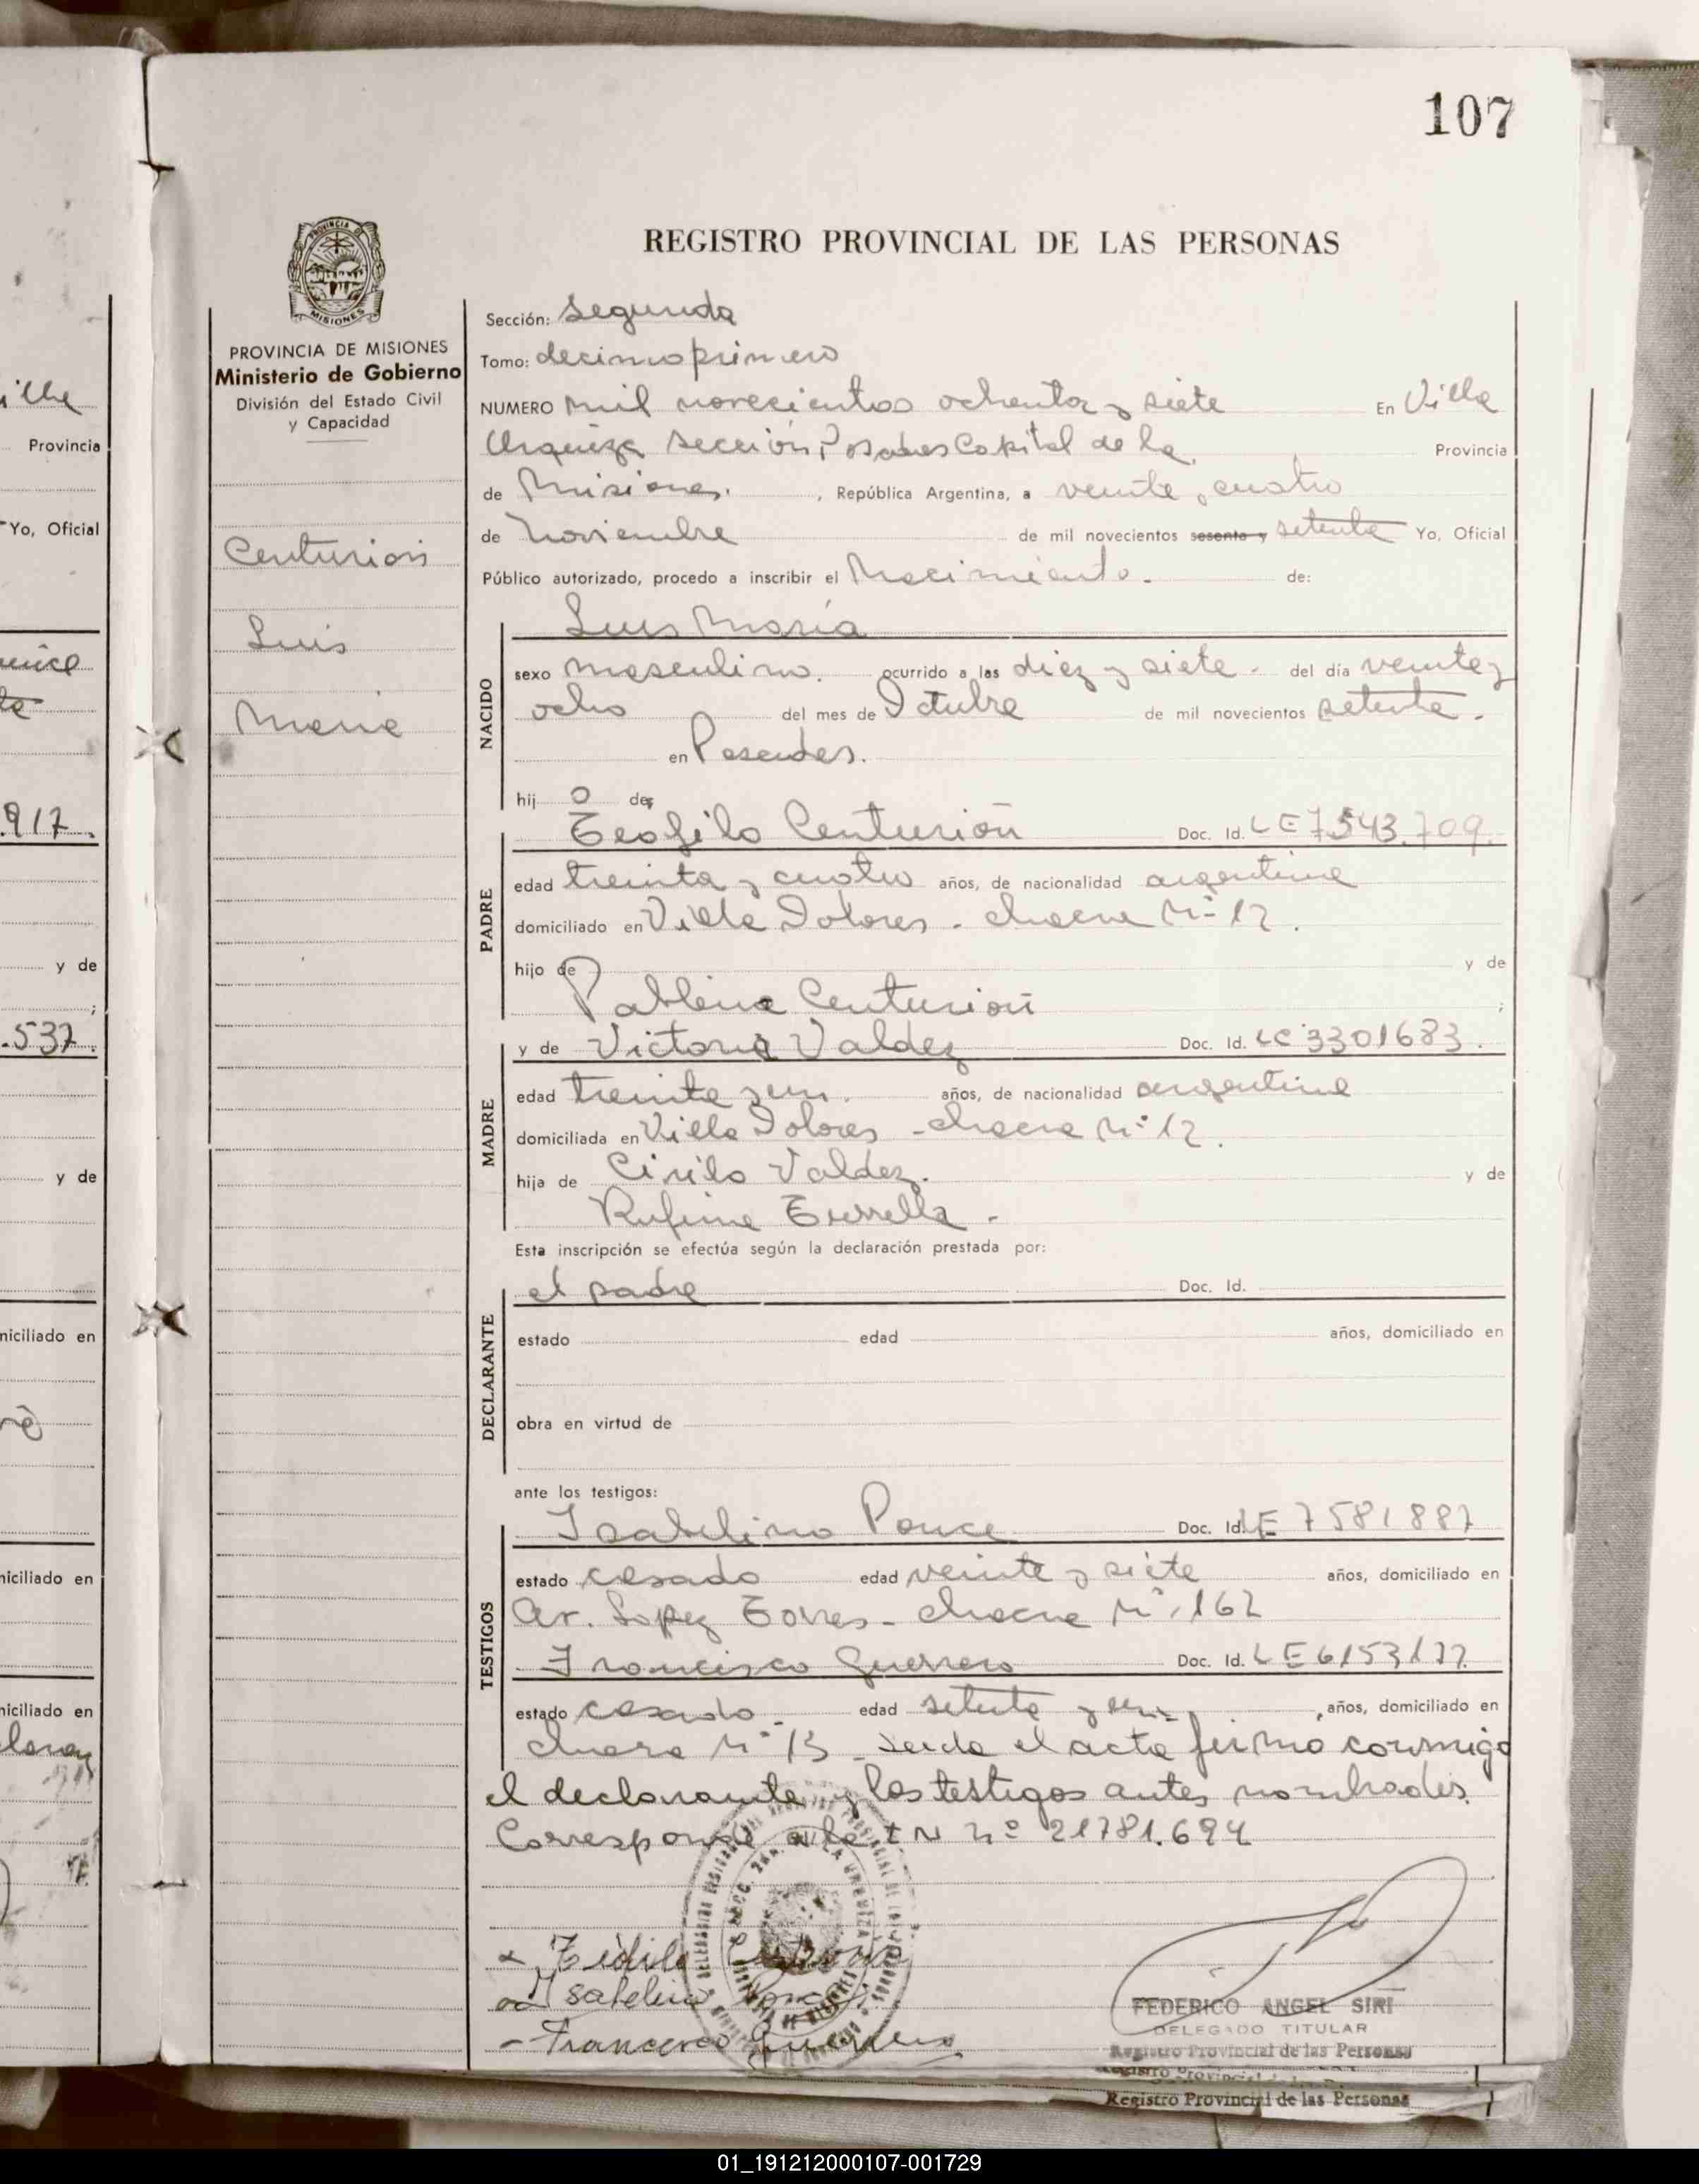 107
REGISTRO PROVINCIAL DE LAS PERSONAS
PROVINCIA DE MISIONES
Ministerio de Gobierno
División del Estado Civil
y Capacidad
Centurion
Luis
Maria
Sección: Segunda
Tomo: decimo primero
NUMERO mil novecientos ochenta y siete En Villa
Urquiza Sección, Posadas Capital de la Provincia
de Misiones. , República Argentina, a veinte y cuatro
de Noviembre de mil novecientos sesenta y setenta Yo, Oficial
Público autorizado, procedo a inscribir el Nacimiento. de:
Luis María
NACIDO
sexo masculino. ocurrido a las diez y siete - del día veinte y
ocho del mes de Octubre de mil novecientos setenta.
en Posadas.
hij o de
PADRE
Teofilo Centurión Doc. Id. LE 7.543.709.
edad treinta y cuatro años, de nacionalidad argentina
domiciliado en Villa Dolores - chacra Nº 12.
hijo de y de
Pablina Centurión ;
MADRE
y de Victoria Valdez Doc. Id. LC 3301683.
edad treinta y un. años, de nacionalidad argentina
domiciliada en Villa Dolores - chacra Nº 12.
hija de Cirilo Valdez. y de
Rufina -
Esta inscripción se efectúa según la declaración prestada por:
DECLARANTE
el padre Doc. Id.
estado edad años, domiciliado en
obra en virtud de
ante los testigos:
TESTIGOS
Isabelino Ponce Doc. Id. LE 7581887
estado casado edad veinte y siete años, domiciliado en
Av. Lopez Torres - chacra Nº 162
Francisco Guerrero Doc. Id. LE 6153177.
estado casado - edad setenta y un años, domiciliado en
chacra Nº 13 - Leida el acta firma conmigo
el declarante y los testigos antes nombrados.
Corresponde a la N Nº 21781.694
Isabelino Ponce
- Francisco Guerrero
FEDERICO ANGEL SIRI
DELEGADO TITULAR
Registro Provincial de las Personas
Registro Provincial de las Personas
Provincia
Yo, Oficial
917.
y de
.537.
y de
niciliado en
niciliado en
niciliado en
01_191212000107-001729